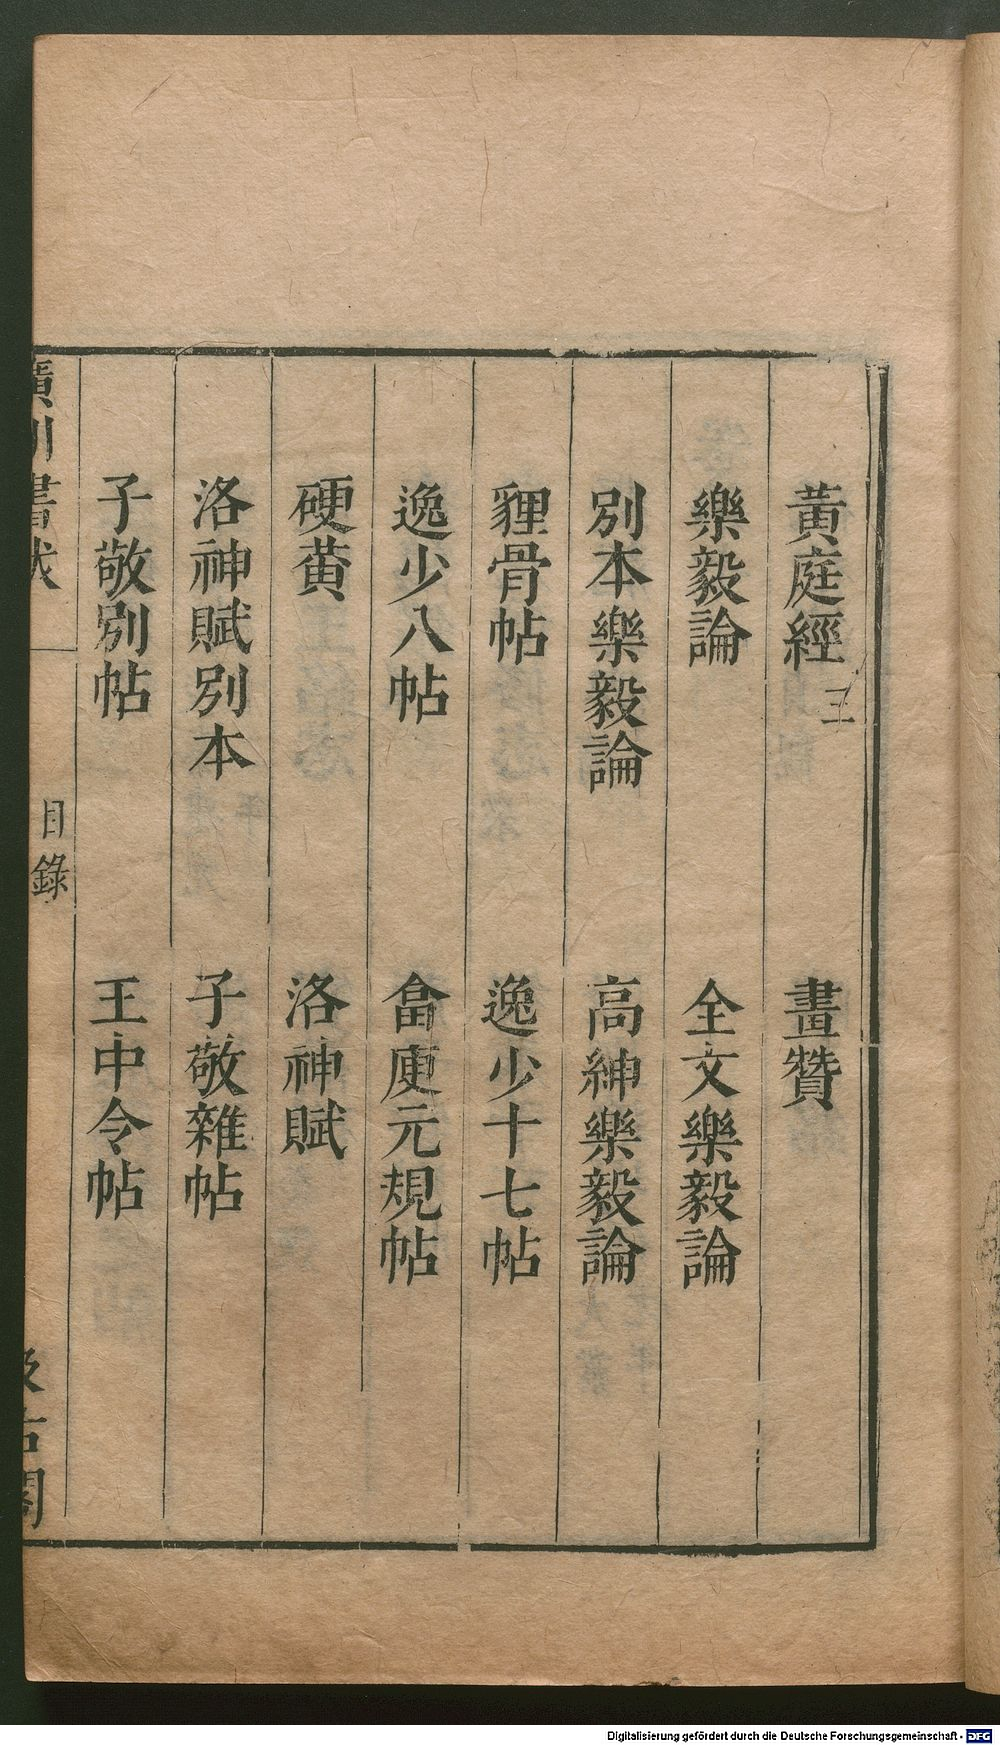 黃庭經 三
畫贊
樂毅論
全文樂毅論
別本樂毅論
高紳樂毅論
貍骨帖
逸少十七帖
逸少八帖
畣庾元規帖
硬黃
洛神賦
洛神賦別本
子敬雜帖
子敬別帖
王中令帖
廣川書跋
目錄
汲古閣
Digitalisierung gefördert durch die Deutsche Forschungsgemeinschaft - DFG